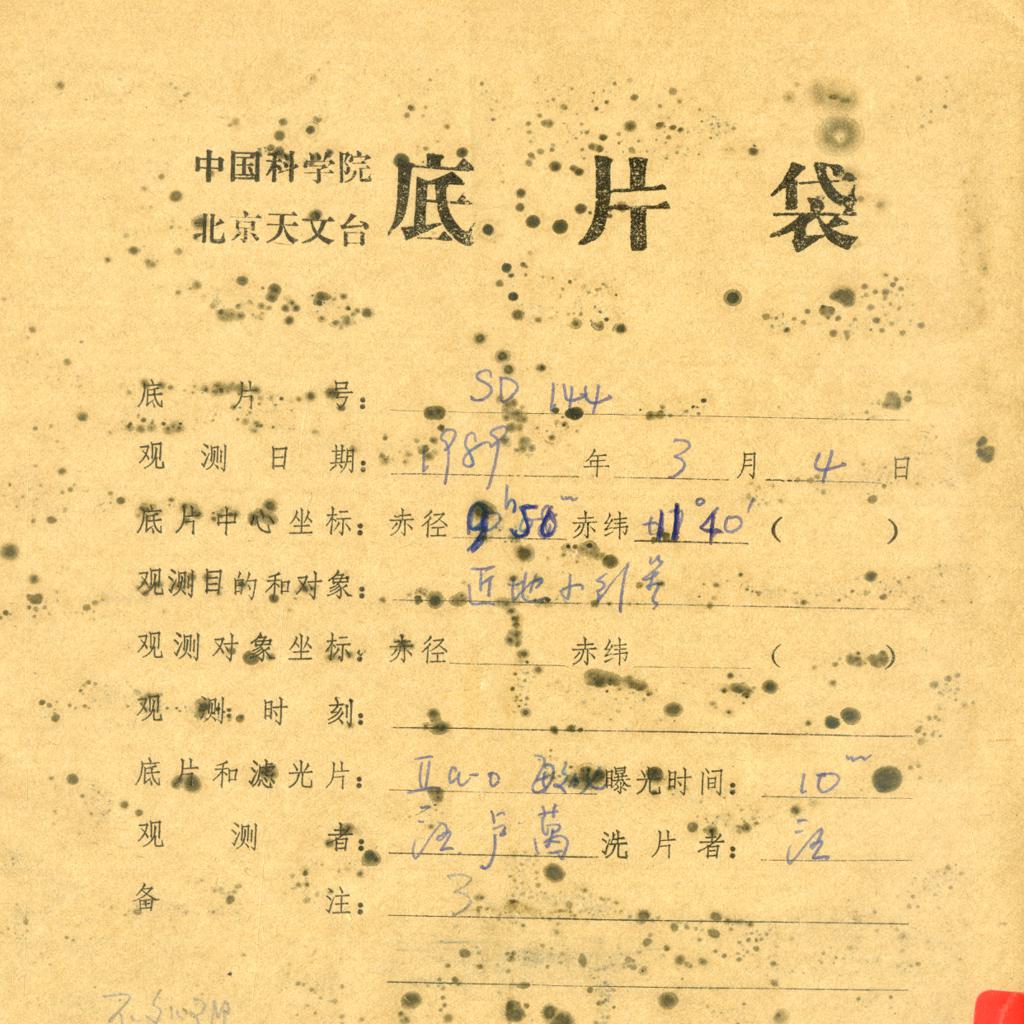 中国科学院
北京天文台
底片袋
底片号： SD 144
观测日期： 1989 年 3 月 4 日
底片中心坐标： 赤径 9h 50m 赤纬 +11°40′ ( )
观测目的和对象： 近地小行星
观测对象坐标： 赤径 赤纬 ( )
观测时刻：
底片和滤光片： IIa-o 敏化 曝光时间： 10m
观测者： 汪 卢 万 洗片者： 汪
备注： 3